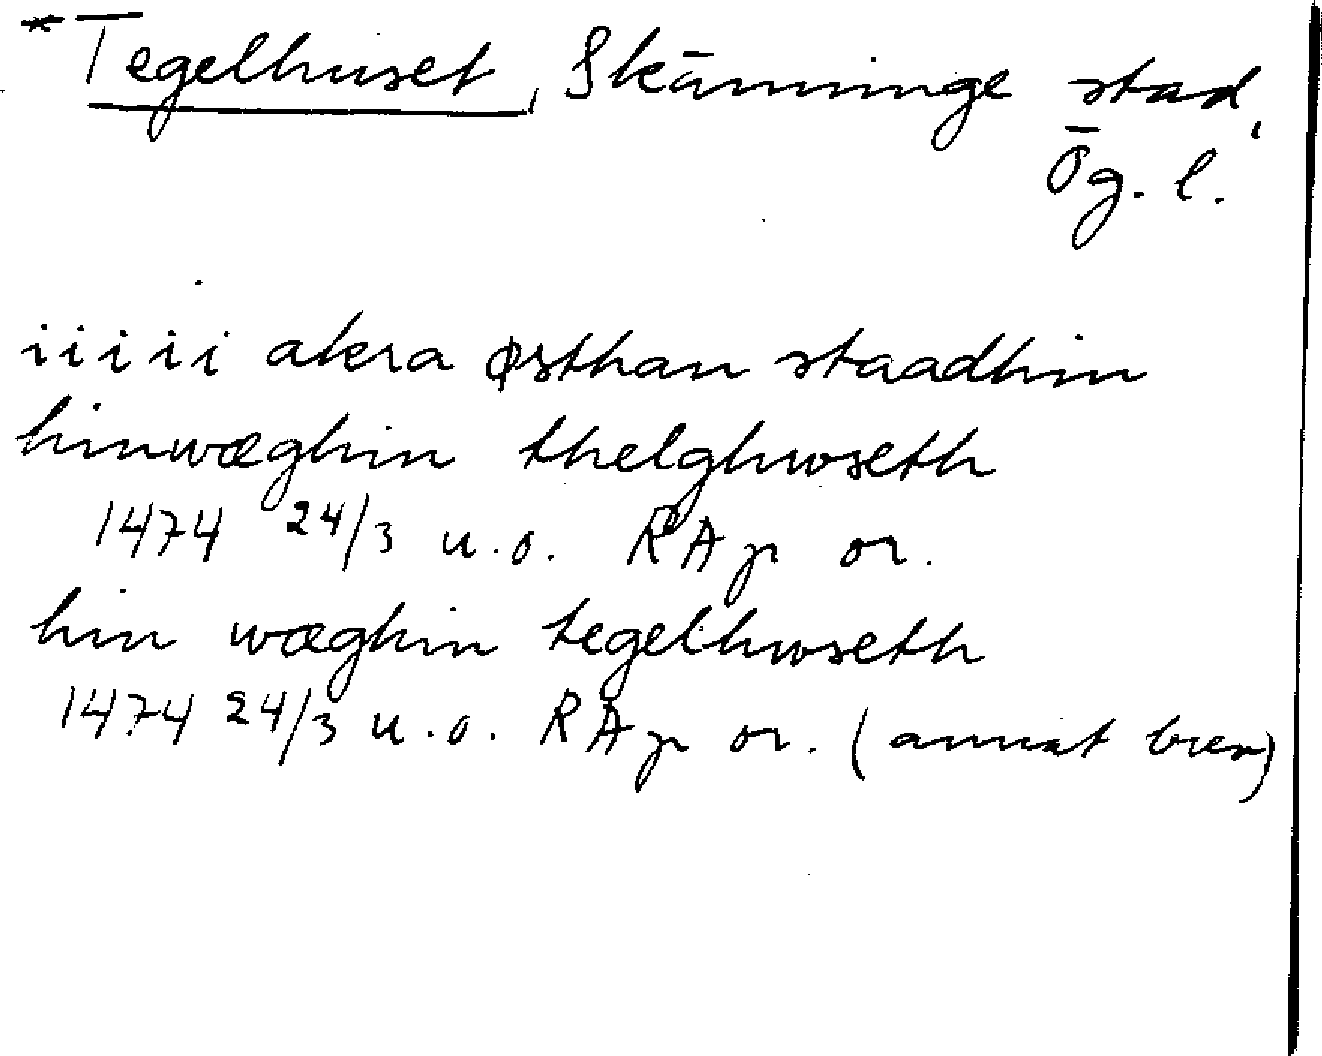 *Tegelhuset, Skänninge stad,
Ög. l.
iiiii akra østhan staadhin
hinwæghin thelghwseth
1474 24/3 u.o. RAp or.
hin wæghin tegelhwseth
1474 24/3 u.o. RAp or. (annat brev)